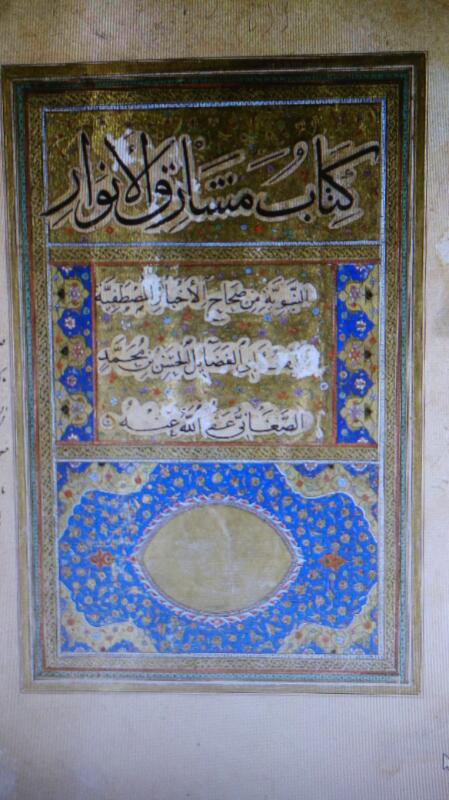 كتاب مشارق الانوار
النبوية من صحاح الاخبار المصطفيه
ابى الفضايل الحسن بن محمد
الصغانى عفا الله عنه